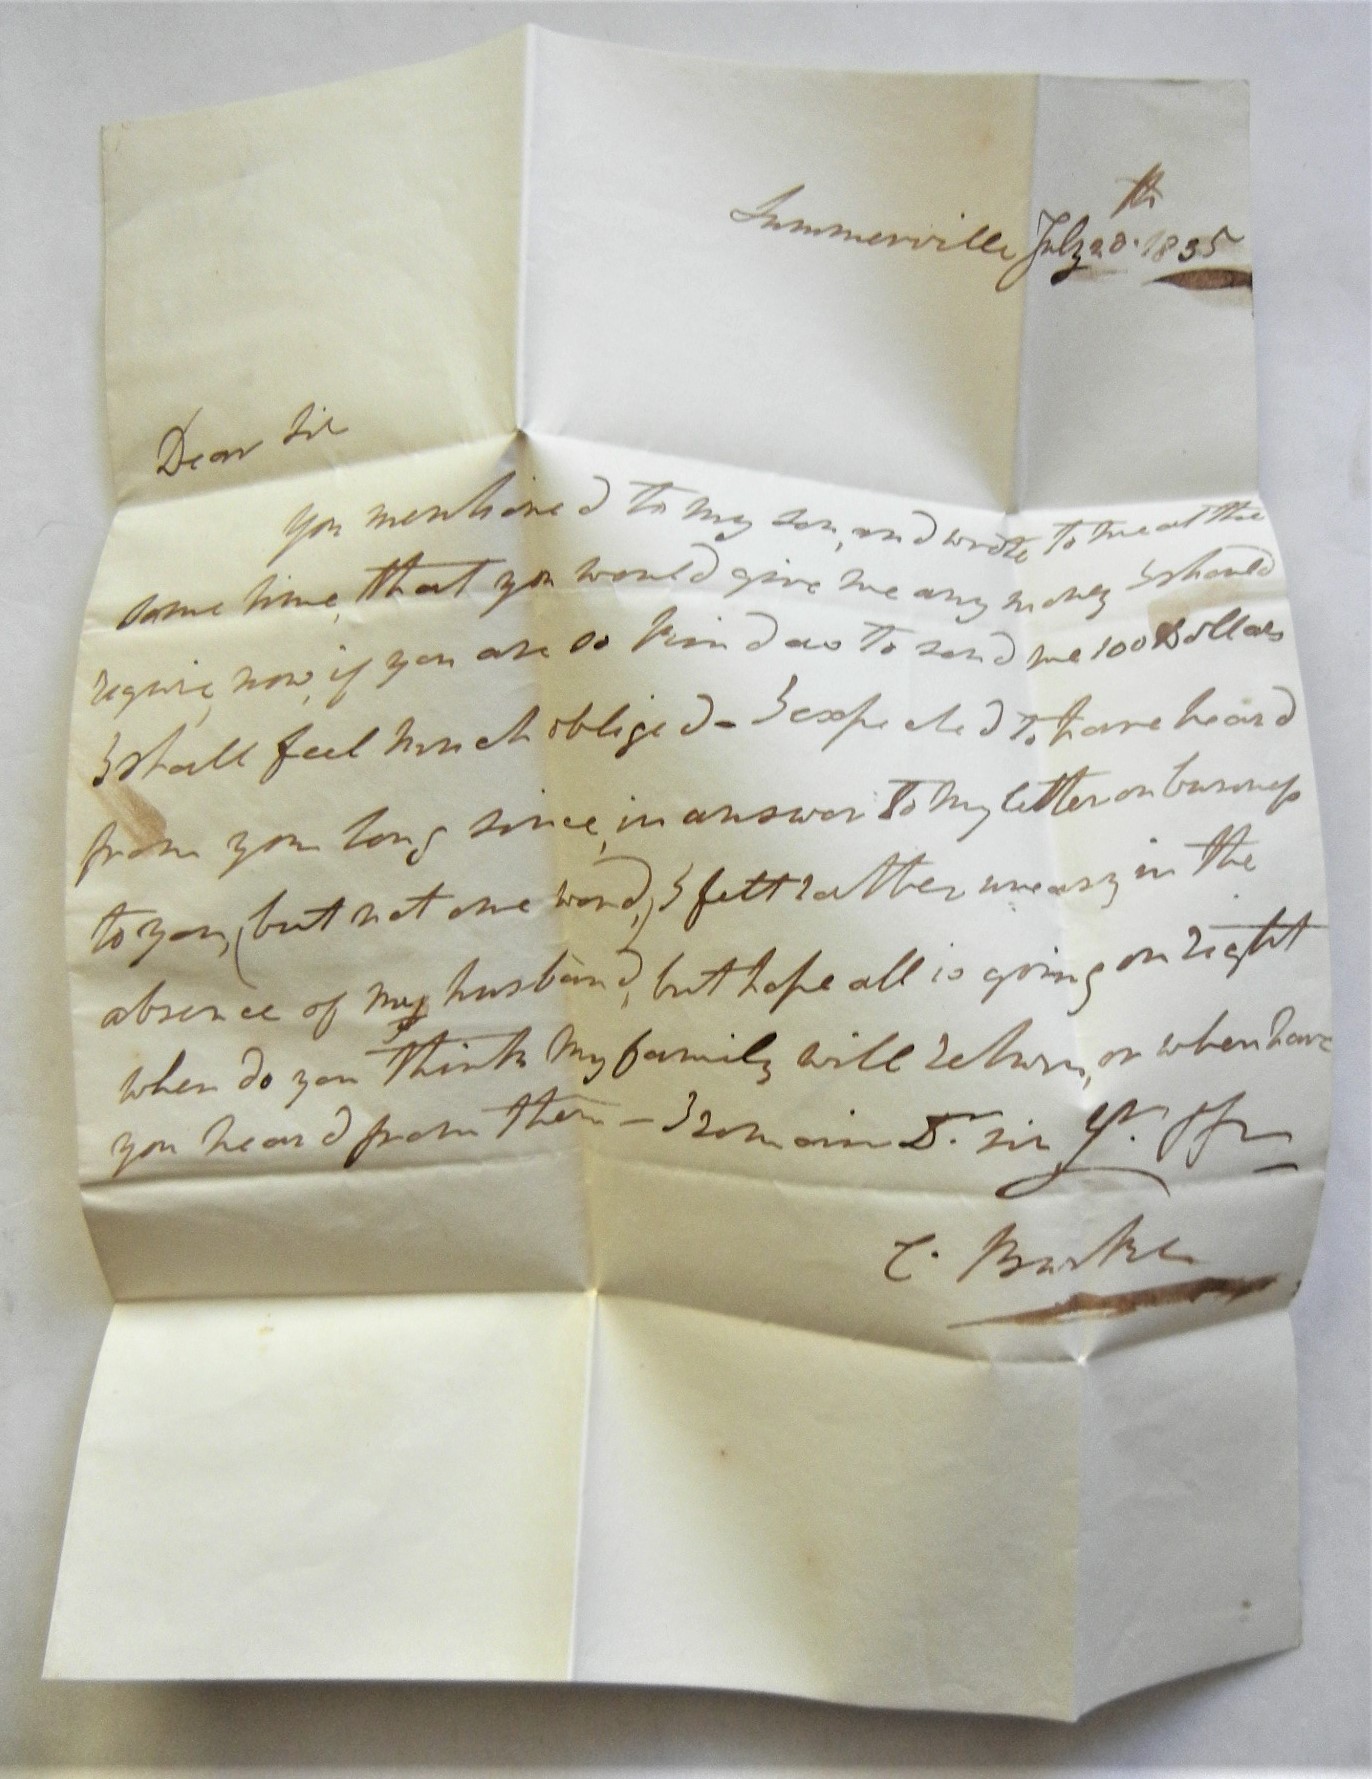 Summerville July 20th. 1835
Dear Sir
you mentioned to my son, and wrote to me at the
same time, that you would give me any money I should
require, now, if you are so kind as to send me 100 Dollars
I shall feel much obliged - I expected to have heard
from you long since, in answer to my letter on business
to you, (but not one word,) I felt rather uneasy in the
absence of my husband, but hope all is going on right
when do you think my family will return, or when have
you heard from them - I remain Dr. sir Yr.
C. Burke